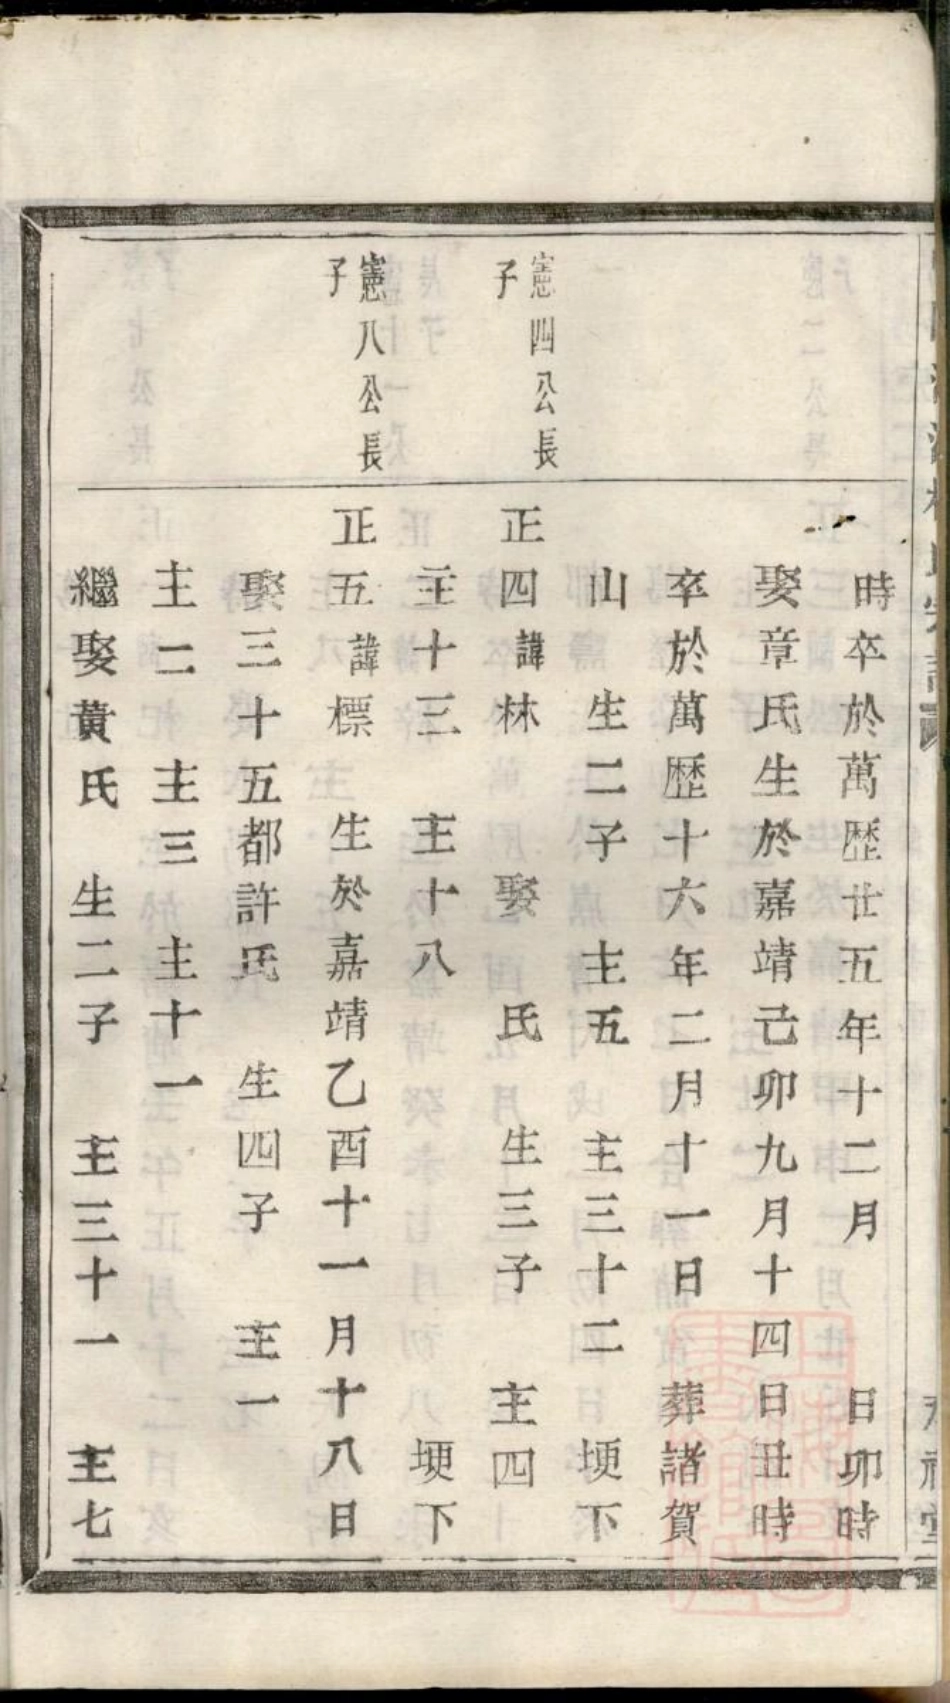 時卒於萬歴廿五年十二月 日卯時
娶章氏生於嘉靖己卯九月十四日丑時
卒於萬歴十六年二月十一日 葬諸賀
山 生二子 主五 主三十二 埂下
憲四公長
子
正四諱林 娶 氏 生三子 主四
主十三 主十八 埂下
憲八公長
子
正五諱標 生於嘉靖乙酉十一月十八日
娶三十五都許氏 生四子 主一
主二 主三 主十一
繼娶黃氏 生二子 主三十一 主七